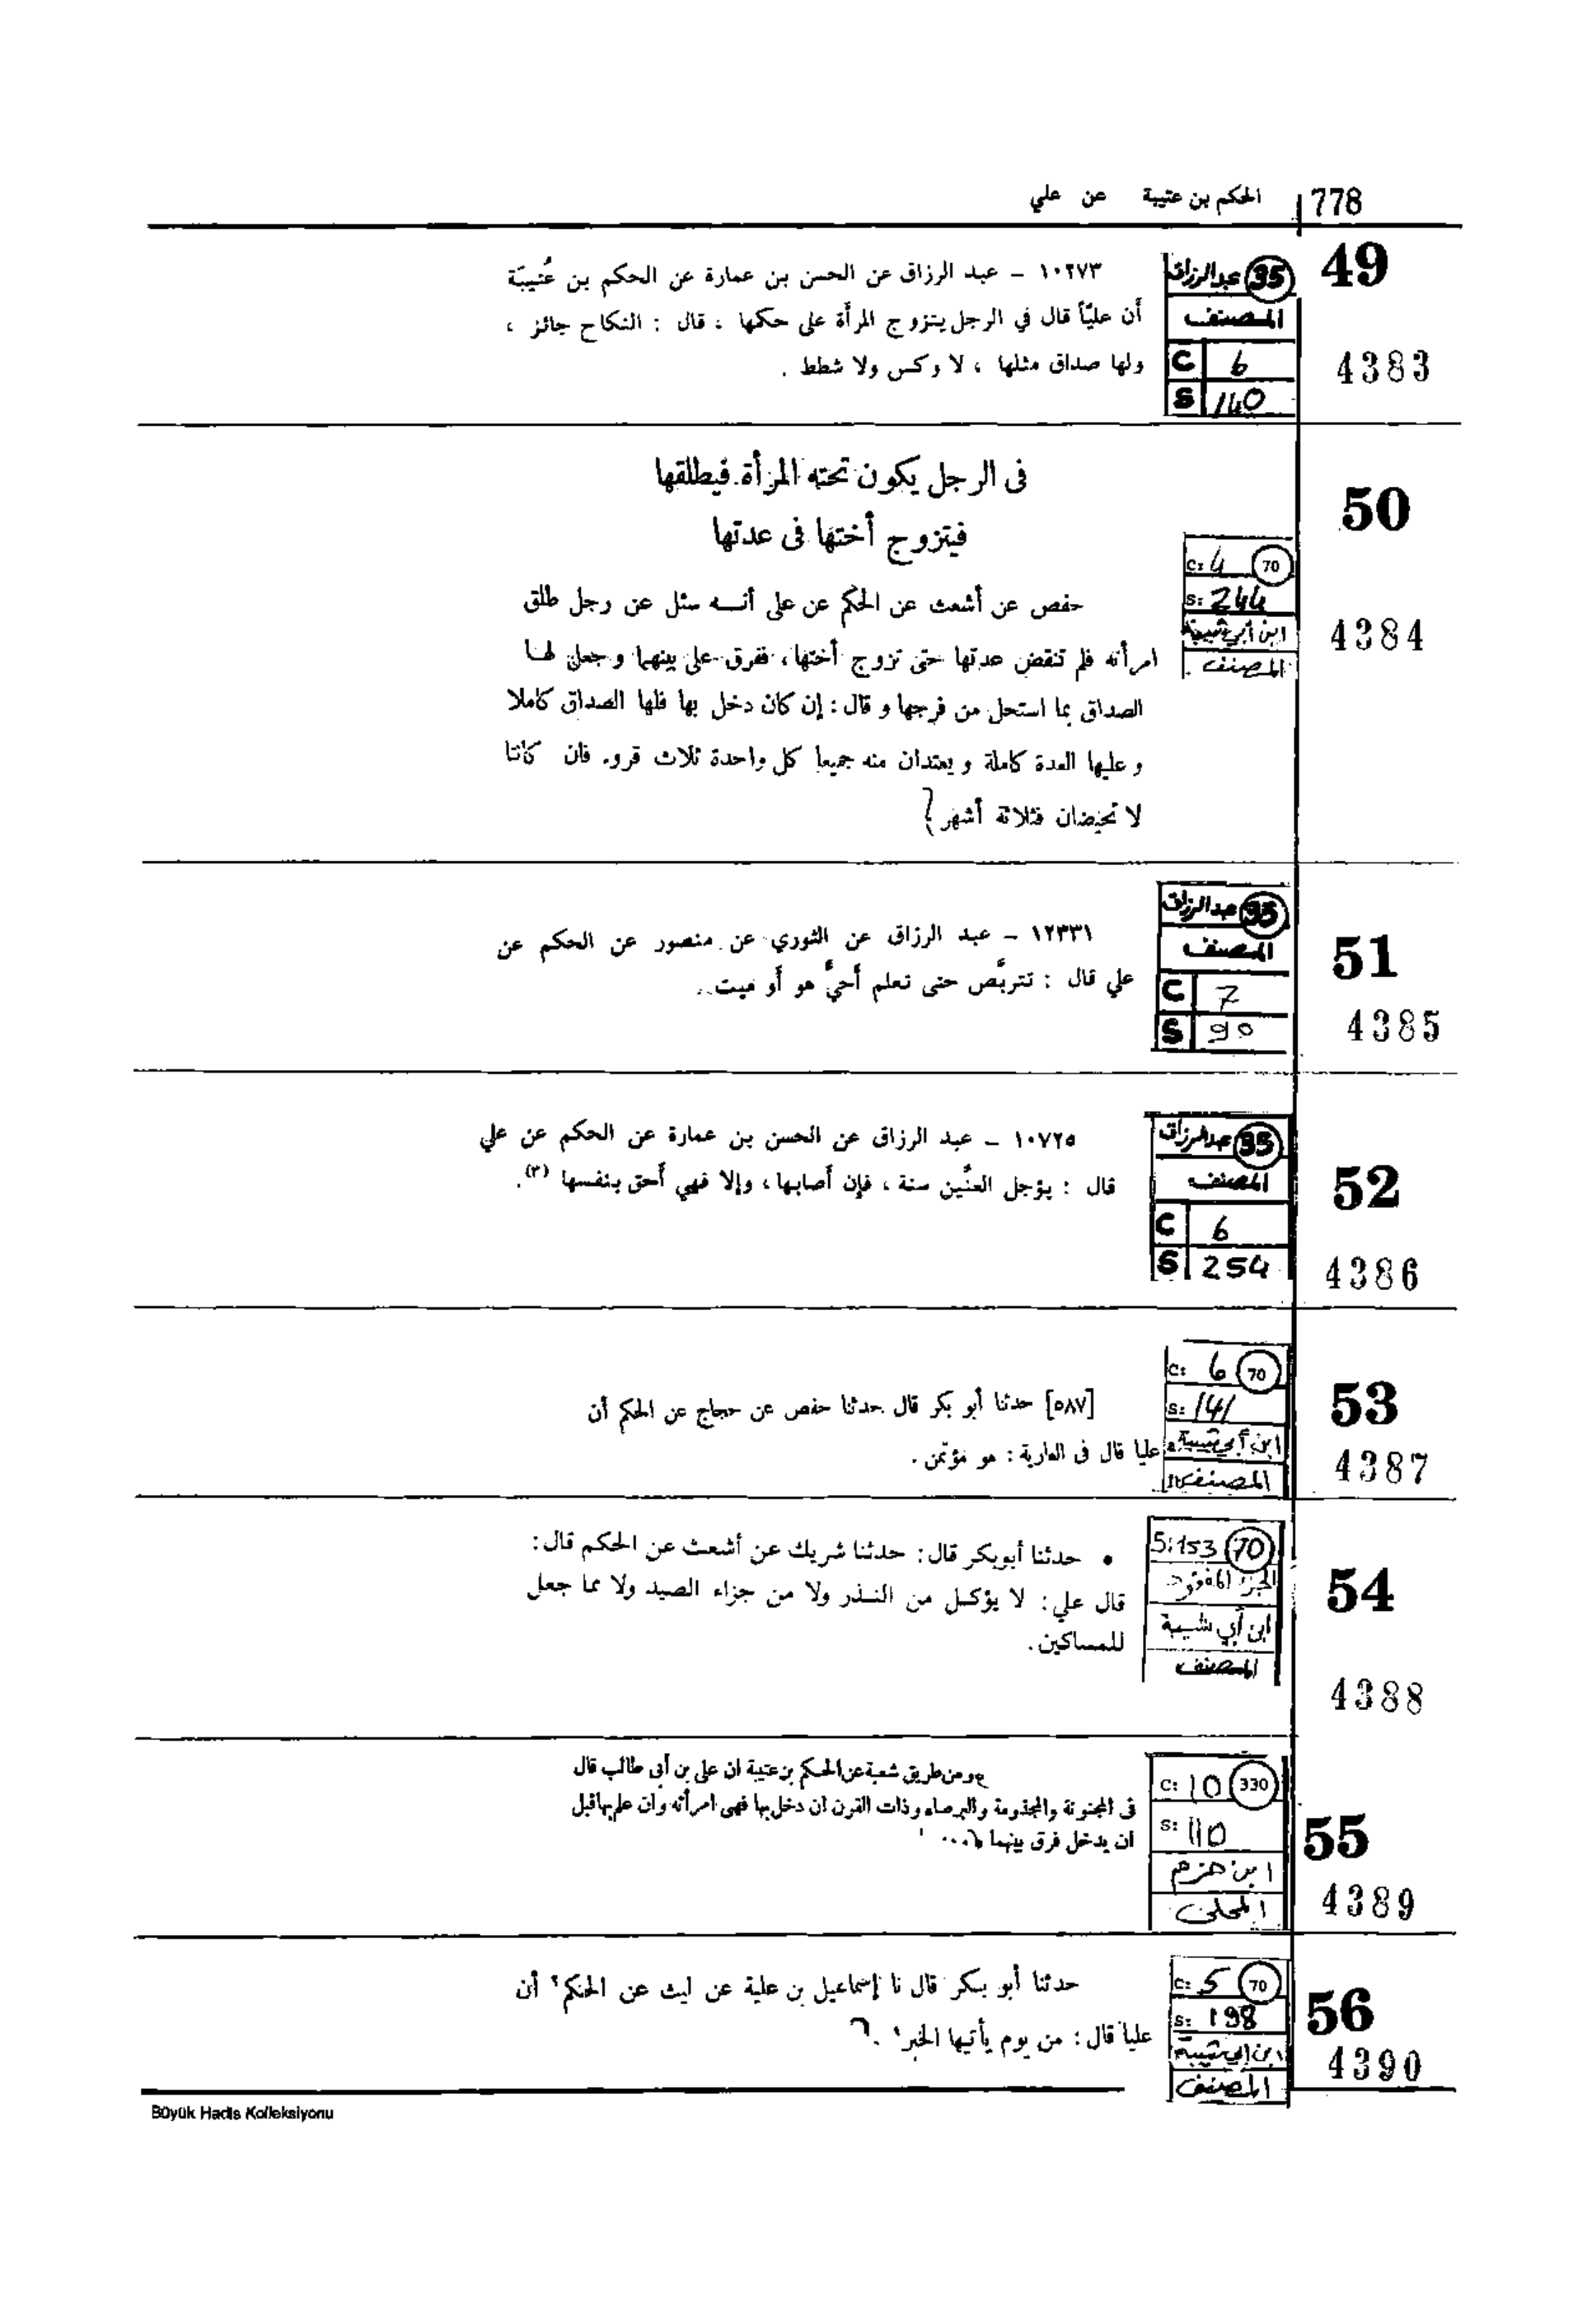 778 الحكم بن عتيبة عن علي
49
4383
35 عبدالرزاق
المصنف
C 6
S 140
١٠٢٧٣ - عبد الرزاق عن الحسن بن عمارة عن الحكم بن عُتيبَة
أن عليّاً قال في الرجل يتزوج المرأة على حكمها ، قال : النكاح جائز ،
ولها صداق مثلها ، لا وكس ولا شطط .
50
4384
C: 4 70
S: 244
ابن أبي شيبة
المصنف
فى الرجل يكون تحته المرأة فيطلقها
فيتزوج أختها فى عدتها
حفص عن أشعث عن الحكم عن على أنه سئل عن رجل طلق
امرأته فلم تنقض عدتها حتى تزوج أختها، ففرق على بينهما وجعل لها
الصداق بما استحل من فرجها و قال : إن كان دخل بها فلها الصداق كاملا
و عليها العدة كاملة و يعتدان منه جميعا كل واحدة ثلاث قروء فان كانتا
لا تحيضان فثلاثة أشهر }
51
4385
35 عبدالرزاق
المصنف
C 7
S 90
١٢٣٣١ - عبد الرزاق عن الثوري عن منصور عن الحكم عن
علي قال : تتربَّص حتى تعلم أَحيٌّ هو أو ميت .
52
4386
35 عبدالرزاق
المصنف
C 6
S 254
١٠٧٢٥ - عبد الرزاق عن الحسن بن عمارة عن الحكم عن علي
قال : يؤجل العنِّين سنة ، فإن أصابها ، وإلا فهي أَحق بنفسها (٣).
53
4387
C: 6 70
S: 141
ابن أبي شيبة
المصنف
[٥٨٧] حدثنا أبو بكر قال حدثنا حفص عن حجاج عن الحكم أن
عليا قال فى العارية : هو مؤتمن .
54
4388
S: 153 70
الجزء المفقود
ابن أبي شيبة
المصنف
• حدثنا أبوبكر قال: حدثنا شريك عن أشعث عن الحكم قال:
قال علي: لا يؤكل من النذر ولا من جزاء الصيد ولا مما جعل
للمساكين.
55
4389
C: 10 330
S: 110
ابن حزم
المحلى
ومن طريق شعبة عن الحكم بن عتيبة ان على بن أبى طالب قال
فى المجنونة والمجذومة والبرصاء وذات القرن ان دخل بها فهى امرأته وان علم بها قبل
ان يدخل فرق بينهما
56
4390
C: 5 70
S: 198
ابن أبي شيبة
المصنف
حدثنا أبو بكر قال نا إسماعيل بن علية عن ليث عن الحكم أن
عليا قال : من يوم يأتيها الخبر .
Büyük Hadis Kolleksiyonu